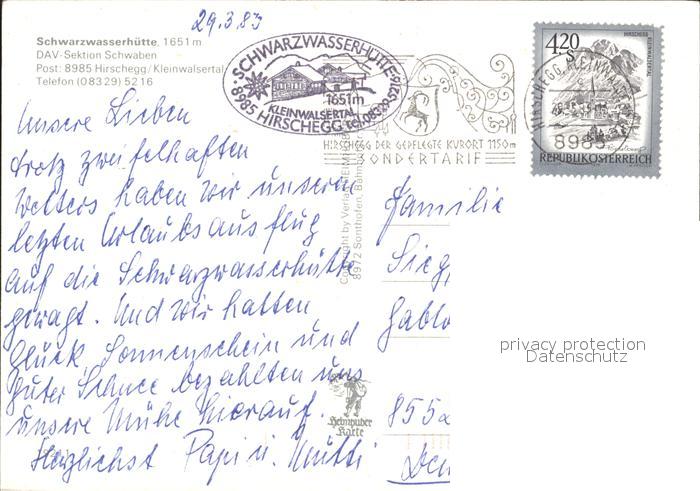 29.3.83
Schwarzwasserhütte, 1651 m
DAV-Sektion Schwaben
Post: 8985 Hirschegg/Kleinwalsertal
Telefon (08329) 5216
SCHWARZWASSERHÜTTE
1651m
KLEINWALSERTAL
8985 HIRSCHEGG tel. 08329-5216
HIRSCHEGG DER GEPFLEGTE KURORT 1150m
SONDERTARIF
4,20
S
HIRSCHEGG
KLEINWALSERTAL
HIRSCHEGG, KLEINWALS
8985
REPUBLIK ÖSTERREICH
Unsere Lieben
trotz zweifelhaften
Wetters haben wir unseren
letzten Urlaubsausflug
auf die Schwarzwasserhütte
gewagt. Und wir hatten
Glück. Sonnenschein und
guter Schnee bezahlten uns
unsere Mühe hierauf.
Herzlichst Papi u. Mutti
Copyright by Verlag
8972 Sonthofen, Bahn
Heimhuber
Karte
Familie
Sieg
Gablo
855
privacy protection
Datenschutz